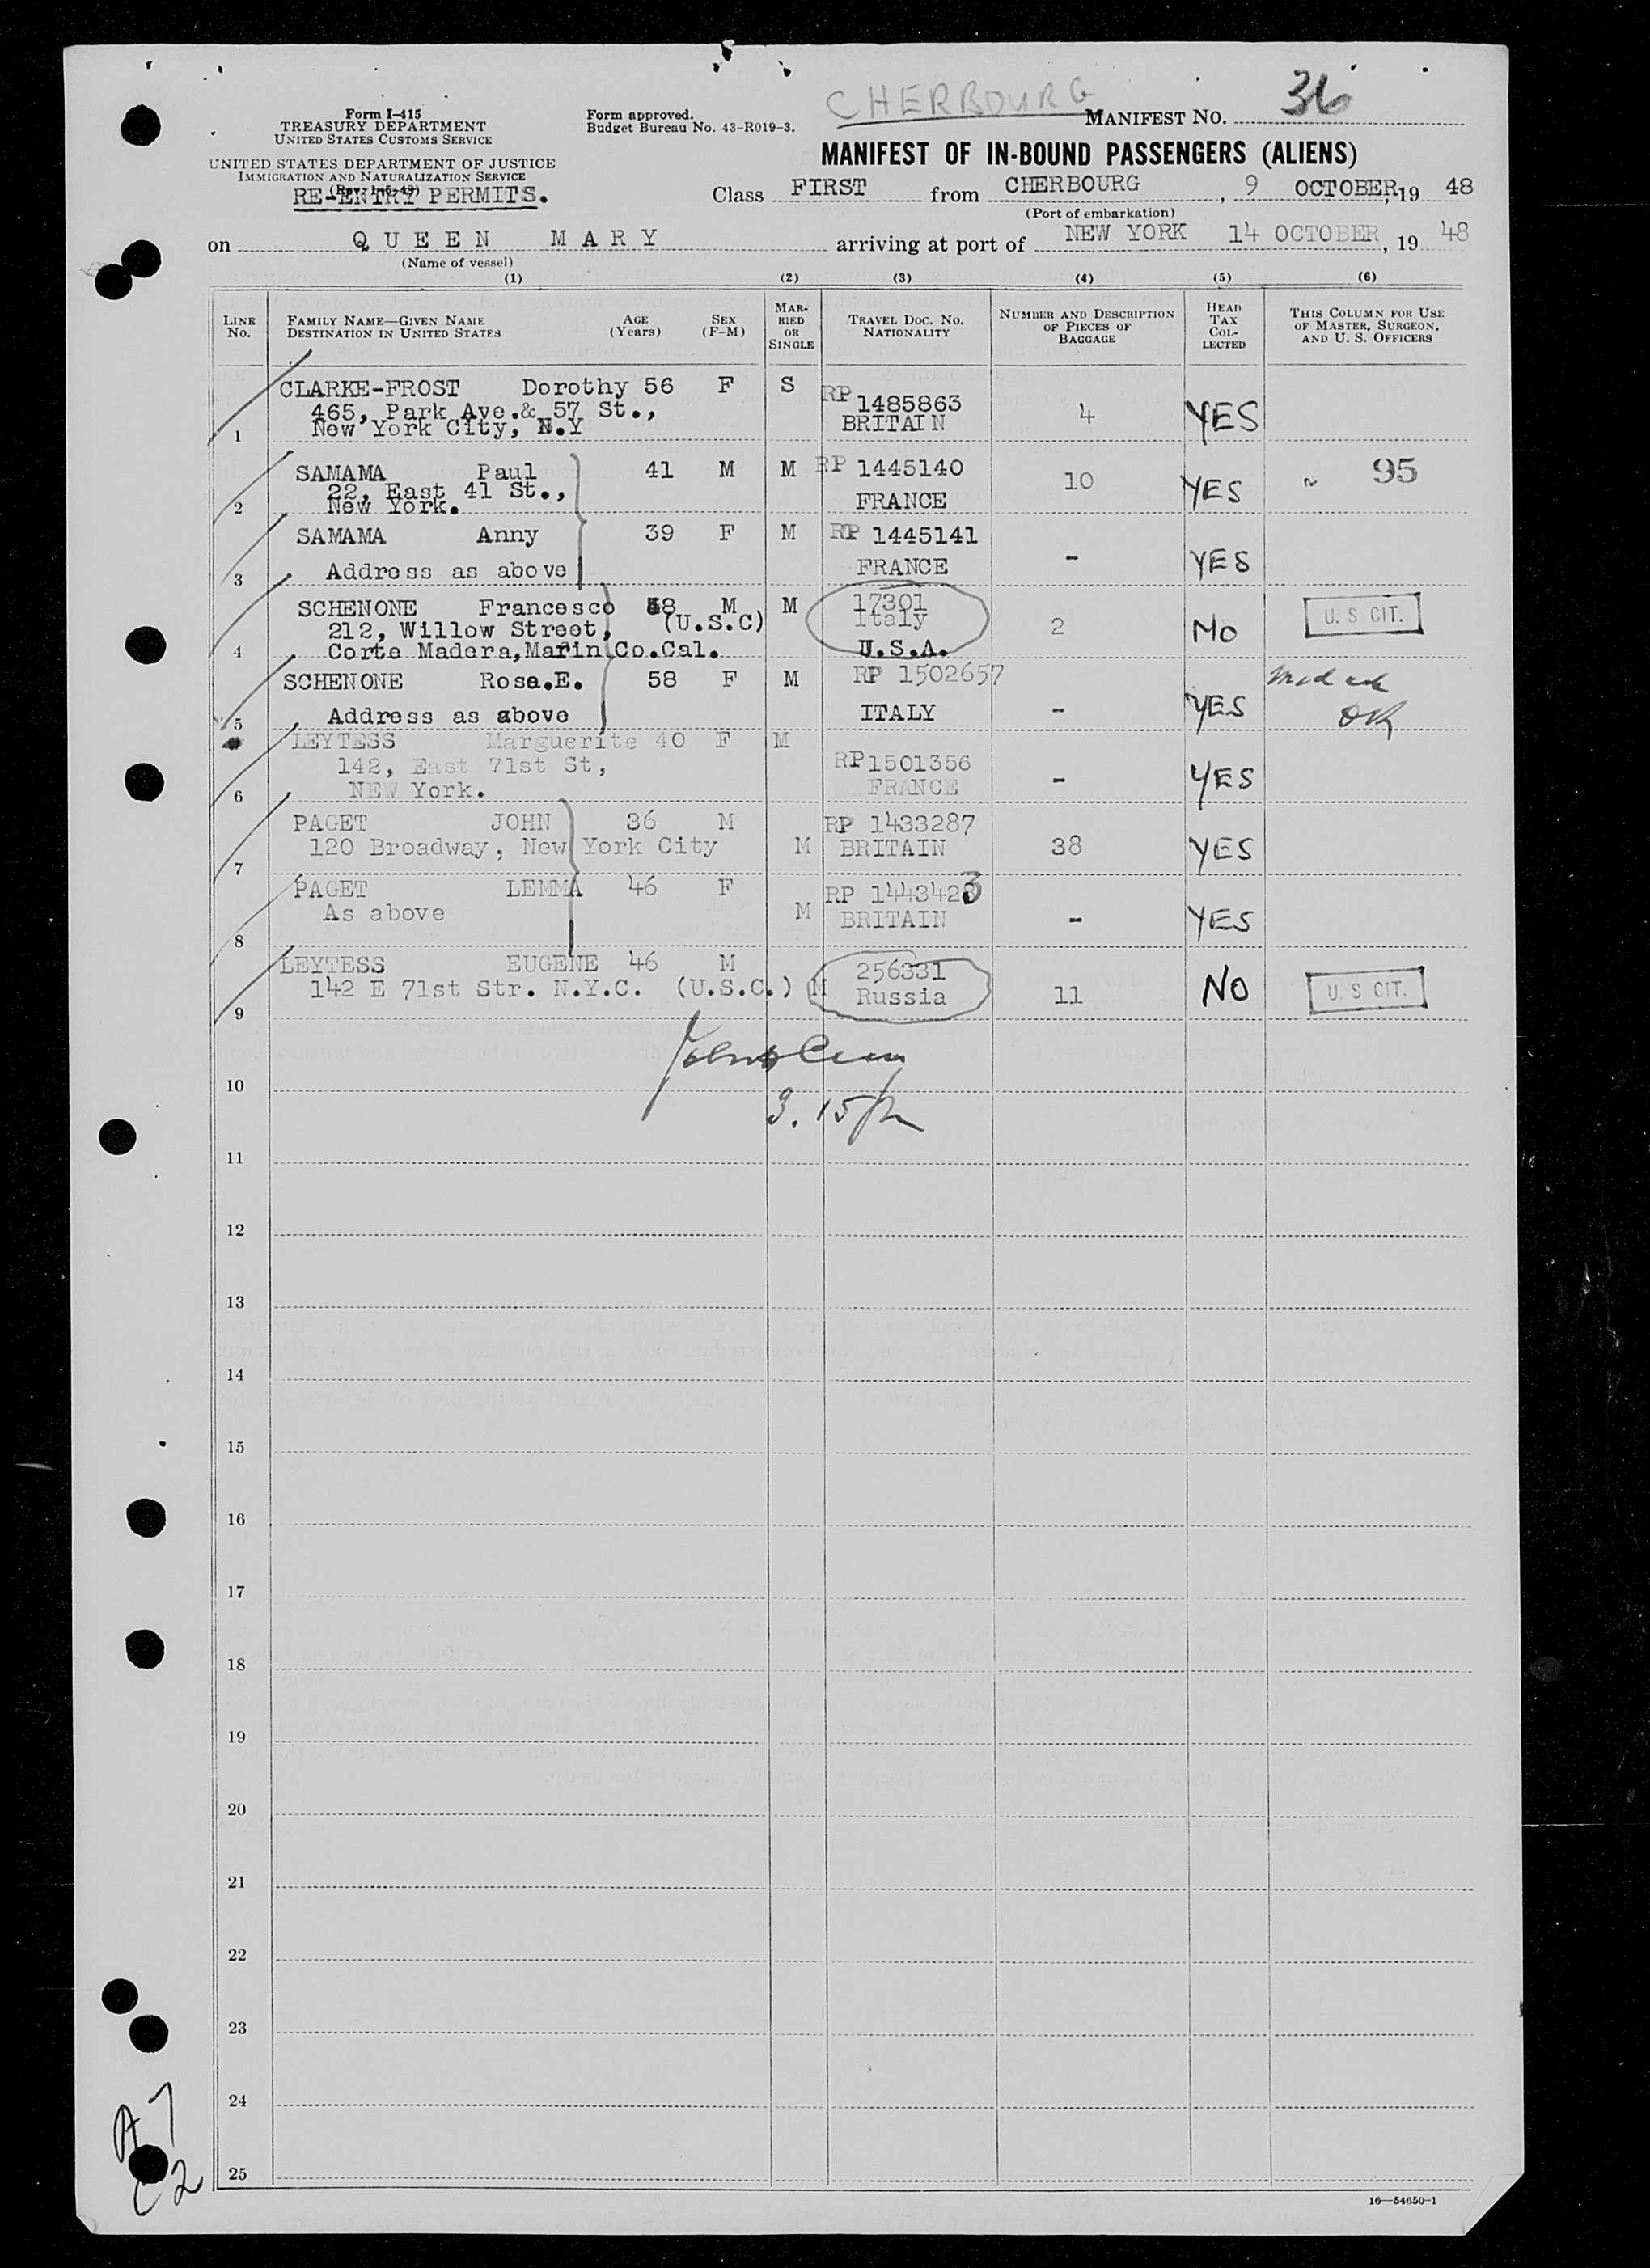 CHERBOURG
Form I-415
TREASURY DEPARTMENT
UNITED STATES CUSTOMS SERVICE
UNITED STATES DEPARTMENT OF JUSTICE
IMMIGRATION AND NATURALIZATION SERVICE
(Rev. 1-6-48)
RE-ENTRY PERMITS.
Form approved.
Budget Bureau No. 43-R019-3.
MANIFEST NO. 36
MANIFEST OF IN-BOUND PASSENGERS (ALIENS)
Class FIRST from CHERBOURG, 9 OCTOBER, 19 48
(Port of embarkation)
on QUEEN MARY arriving at port of NEW YORK 14 OCTOBER, 19 48
(Name of vessel)
(1) (2) (3) (4) (5) (6)
LINE No. FAMILY NAME—GIVEN NAME DESTINATION IN UNITED STATES AGE (Years) SEX (F-M) MARRIED OR SINGLE TRAVEL DOC. NO. NATIONALITY NUMBER AND DESCRIPTION OF PIECES OF BAGGAGE HEAD TAX COLLECTED THIS COLUMN FOR USE OF MASTER, SURGEON, AND U. S. OFFICERS
CLARKE-FROST Dorothy 56 F S RP 1485863
465, Park Ave.& 57 St., BRITAIN 4 YES
1 New York City, N.Y
SAMAMA Paul 41 M M RP 1445140 95
22, East 41 St., 10 YES
2 New York. FRANCE
SAMAMA Anny 39 F M RP 1445141
- YES
3 Address as above FRANCE
SCHENONE Francesco 58 M M 17301
212, Willow Street, (U.S.C) Italy 2 No U. S CIT.
4 Corte Madera, Marin Co.Cal. U.S.A.
SCHENONE Rose.E. 58 F M RP 1502657
5 Address as above ITALY - YES OK
LEYTESS Marguerite 40 F M
142, East 71st St, RP1501356 - YES
6 NEW York. FRANCE
PAGET JOHN 36 M RP 1433287
120 Broadway, New York City M BRITAIN 38 YES
7
PAGET LEMMA 46 F RP 1443423
As above M BRITAIN - YES
8
LEYTESS EUGENE 46 M 256331
142 E 71st Str. N.Y.C. (U.S.C.) M Russia 11 NO U. S CIT.
9
10
3.15 pm
11
12
13
14
15
16
17
18
19
20
21
22
23
24
25
A 7
C 2
16—54650-1